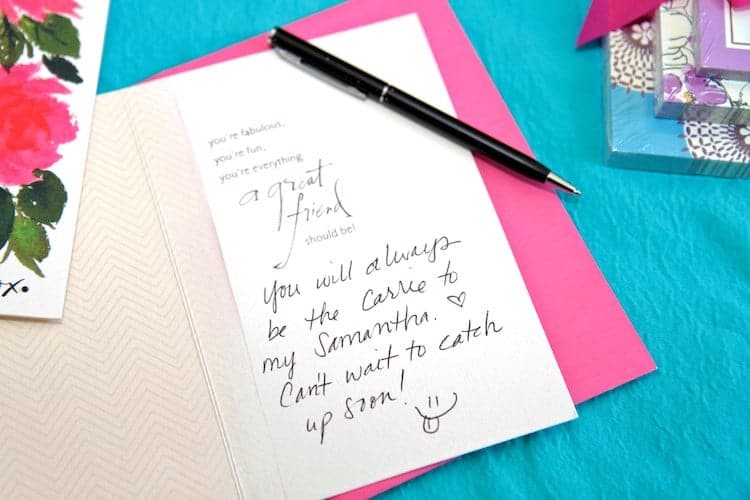 you're fabulous,
you're fun,
you're everything
a great
friend
should be!
You will always
be the Carrie to
my Samantha. ♡
Can't wait to catch
up soon!
x.